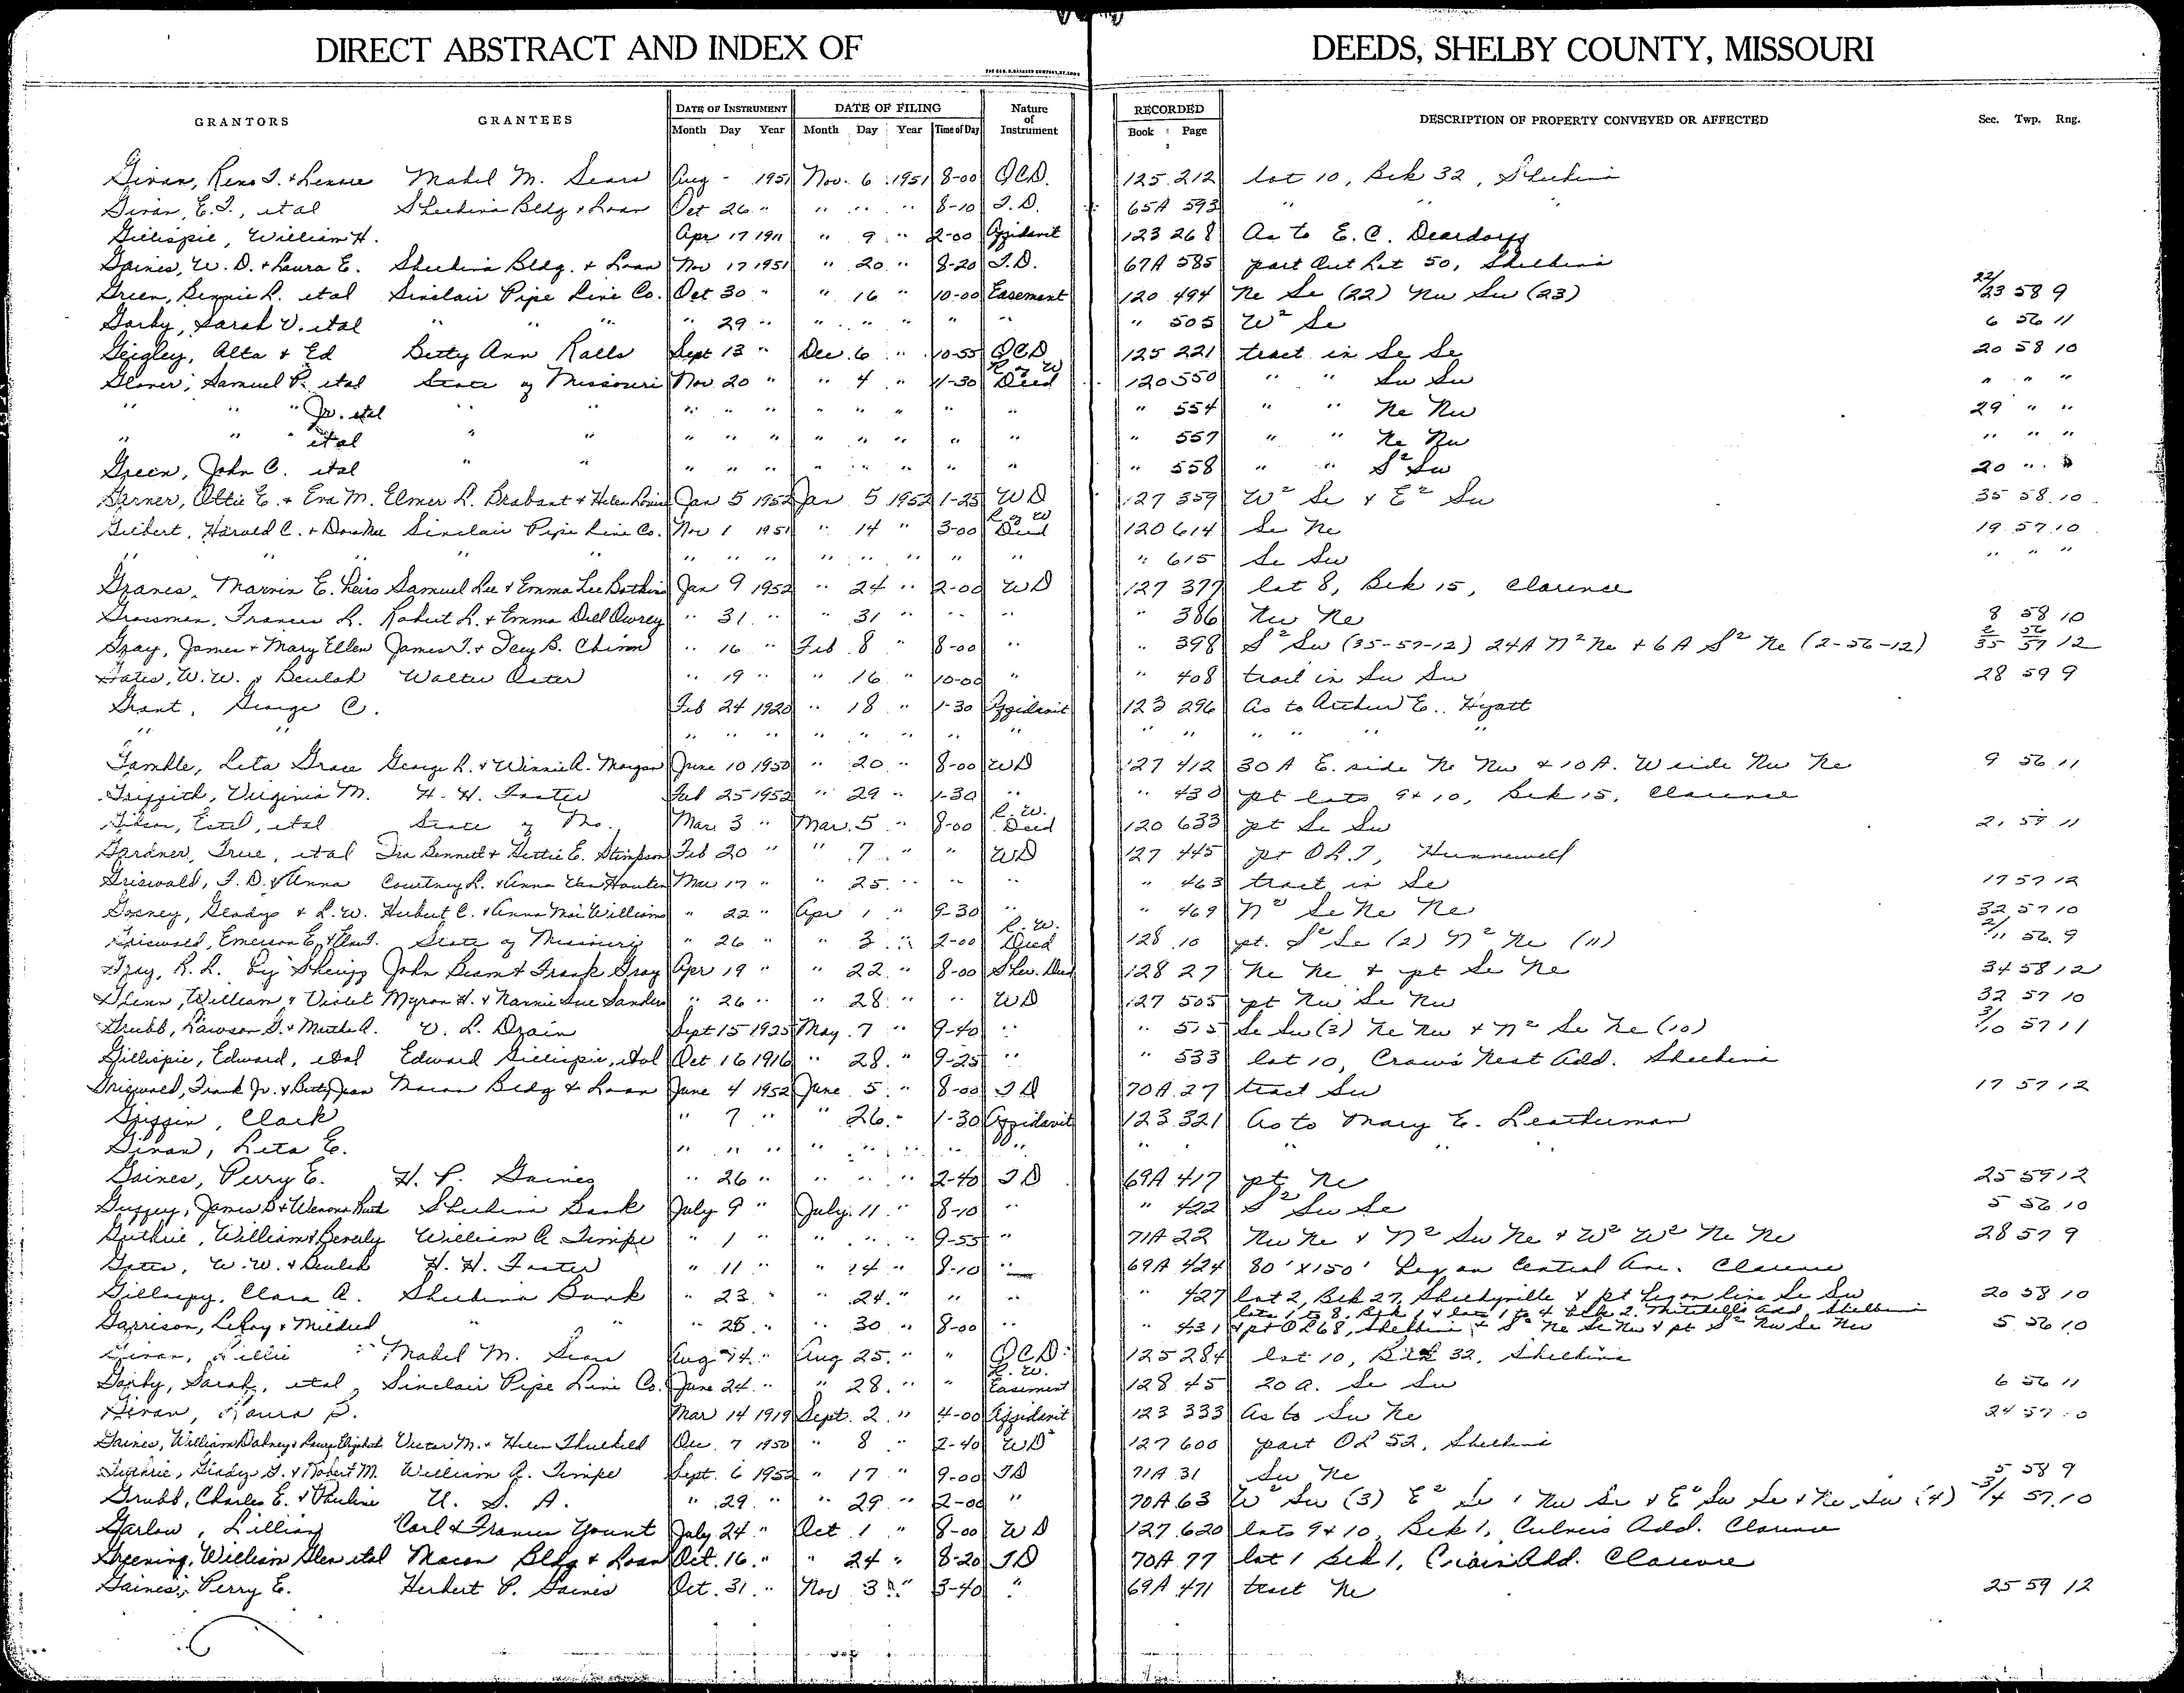 DIRECT ABSTRACT AND INDEX OF DEEDS, SHELBY COUNTY, MISSOURI
GRANTORS GRANTEES DATE OF INSTRUMENT DATE OF FILING Nature of Instrument RECORDED DESCRIPTION OF PROPERTY CONVEYED OR AFFECTED Sec. Twp. Rng.
Month Day Year Month Day Year Time of Day Book Page
Givan, Reno T. & Lennie Mabel M. Sears Aug - 1951 Nov. 6 1951 8-00 QCD. 125 212 lot 10, Blk 32, Shelbina
Givan, E.T., et al Shelbina Bldg & Loan Oct 26 " " " " 8-10 T.D. 65A 593 " " "
Gillispie, William H. Apr 17 1911 " 9 " 2-00 Affidavit 123 268 As to E. C. Deardorff
Gaines, W. D. & Laura E. Shelbina Bldg. & Loan Nov 17 1951 " 20 " 8-20 T.D. 67A 585 part Out Lot 50, Shelbina
Green, Bennie L. et al Sinclair Pipe Line Co. Oct 30 " " 16 " 10-00 Easement 120 494 Ne Se (22) Nw Sw (23) 22/23 58 9
Garby, Sarah V. et al " " " " 29 " " " " " " " 505 W² Se 6 56 11
Geigley, Alta & Ed Betty Ann Ralls Sept 13 " Dec. 6 " 10-55 QCD 125 221 tract in Se Se 20 58 10
Glover, Samuel P. et al State of Missouri Nov. 20 " " 4 " 11-30 R of W Deed 120 550 " " Sw Sw " " "
" " " Jr. et al " " " " " " " " " " " 554 " " Ne Nw 29 " "
" " " et al " " " " " " " " " " " 557 " " Ne Nw " " "
Green, John C. et al " " " " " " " " " " " 558 " " S² Sw 20 " "
Gerner, Ottie E. & Eva M. Elmer L. Brabant & Helen Louise Jan 5 1952 Jan 5 1952 1-25 WD 127 359 W² Se & E² Sw 35 58 10
Gilbert, Harold C. & Dorothee Sinclair Pipe Line Co. Nov 1 1951 " 14 " 3-00 R of W Deed 120 614 Se Ne 19 57 10
" " " " " " " " " " " " " " " 615 Se Sw " " "
Graves, Marvin E. heirs Samuel Lee & Emma Lee Botkins Jan 9 1952 " 24 " 2-00 WD 127 377 lot 8, Blk 15, Clarence
Grossman, Frances L. Robert L. & Emma Dell Owrey " 31 " " 31 " " " " 386 Nw Ne 8 58 10
Gray, James & Mary Ellen James T. & Icey B. Chinn " 16 " Feb 8 " 8-00 " " 398 S² Sw (35-57-12) 24A N² Ne & 6A S² Ne (2-56-12) 2/35 56/57 12
Gates, W. W. & Beulah Walter Oster " 19 " " 16 " 10-00 " " 408 tract in Sw Sw 28 59 9
Grant, George C. Feb 24 1920 " 18 " 1-30 Affidavit 123 296 As to Arthur E. Hyatt
" " " " " " " " " " " " " " " "
Gamble, Leta Grace George L. & Winnie A. Morgan June 10 1950 " 20 " 8-00 WD 127 412 30 A E. side Ne Nw & 10 A. W side Nw Ne 9 56 11
Griffith, Virginia M. H. H. Foster Feb 25 1952 " 29 " 1-30 " " 430 pt lots 9 & 10, Blk 15, Clarence
Gibson, Estel, et al State of Mo. Mar 3 " Mar. 5 " 8-00 R. W. Deed 120 633 pt Se Sw 21 59 11
Gardner, True, et al Ira Bennett & Hettie E. Stimpson Feb 20 " " 7 " " WD 127 445 pt OL 7, Hunnewell
Griswold, T. D. & Anna Courtney L. & Anna Van Houten Mar 17 " " 25 " " " " 463 tract in Se 17 57 12
Gosney, Gladys & L. W. Hubert C. & Anna Mae Williams " 22 " Apr 1 " 9-30 " " 469 N² Se Ne Ne 32 57 10
Griswold, Emerson E. & State of Missouri " 26 " " 3 " 2-00 R. W. Deed 128 10 pt. S² Se (2) N² Ne (11) 2/11 56 9
Gray, R. L. by Sheriff John Beam & Frank Gray Apr 19 " " 22 " 8-00 Sher. Deed 128 27 Ne Ne & pt Se Ne 34 58 12
Glenn, William & Violet Myron H. & Nannie Sue Sanders " 26 " " 28 " " WD 127 505 pt Nw Se Nw 32 57 10
Grubb, Lawson G. & Martha A. V. L. Drain Sept 15 1925 May 7 " 9-40 " " 515 Se Sw (3) Ne Nw & N² Se Ne (10) 3/10 57 11
Gillispie, Edward, et al Edward Gillispie, et al Oct 16 1916 " 28 " 9-25 " " 533 lot 10, Crow's Nest Add. Shelbina
Griswold, Frank Jr. & Betty Jean Macon Bldg & Loan June 4 1952 June 5 " 8-00 TD 70A 27 tract Sw 17 57 12
Griffin, Clark " 7 " " 26 " 1-30 Affidavit 123 321 As to Mary E. Leatherman
Givan, Leta E. " " " " " " " " " " " "
Gaines, Perry E. H. P. Gaines " 26 " " " " 2-40 TD 69A 417 pt Ne 25 59 12
Guffey, James D & Wenona Ruth Shelbina Bank July 9 " July 11 " 8-10 " " 422 S² Sw Se 5 56 10
Guthrie, William & Beverly William A Timpe " 1 " " " " 9-55 " 71A 22 Nw Ne & N² Sw Ne & W² W² Ne Ne 28 57 9
Gates, W. W. & Beulah H. H. Foster " 11 " " 14 " 8-10 " 69A 424 80' X 150' Beg on Central Ave. Clarence
Gillaspy, Clara A. Shelbina Bank " 23 " " 24 " " " " 427 lot 2, Blk 27, Shelbyville & pt beg on line Se Sw 20 58 10
Garrison, LeRoy & Mildred " " " 25 " " 30 " 8-00 " " 431 lots 1 to 8, Blk 1 & lots 1 to 4 Blk 2, Mitchell's Add, Shelbina & pt OL 68, Shelbina & S² Ne Se Nw & pt S² Nw Se Nw 5 56 10
Givan, Lillie Mabel M. Sears Aug 14 " Aug 25 " " QCD 125 284 lot 10, Blk 32, Shelbina
Garby, Sarah, et al Sinclair Pipe Line Co. June 24 " " 28 " " R. W. Easement 128 45 20 a. Se Sw 6 56 11
Givan, Laura Mar 14 1919 Sept. 2 " 4-00 Affidavit 123 333 As to Sw Ne 24 57 10
Gaines, William Dabney & Laura Elizabeth Victor M. & Helen Thielkeld Dec. 7 1950 " 8 " 2-40 WD 127 600 part OL 52, Shelbina
Guthrie, Gladys G. & Robert M. William A. Timpe Sept. 6 1952 " 17 " 9-00 TD 71A 31 Sw Ne 5 58 9
Grubb, Charles E. & Pauline U. S. A. " 29 " " 29 " 2-00 " 70A 63 W² Sw (3) E² Se & Nw Se & E² Sw Se & Ne Sw (4) 3/4 57 10
Garlow, Lillian Carl & Frances Yount July 24 " Oct 1 " 8-00 WD 127 620 lots 9 & 10, Blk 1, Culver's Add. Clarence
Greening, William Glen et al Macon Bldg & Loan Oct. 16 " " 24 " 8-20 TD 70A 77 lot 1 Blk 1, Add. Clarence
Gaines, Perry E. Herbert P. Gaines Oct. 31 " Nov 3 " 3-40 " 69A 471 tract Ne 25 59 12